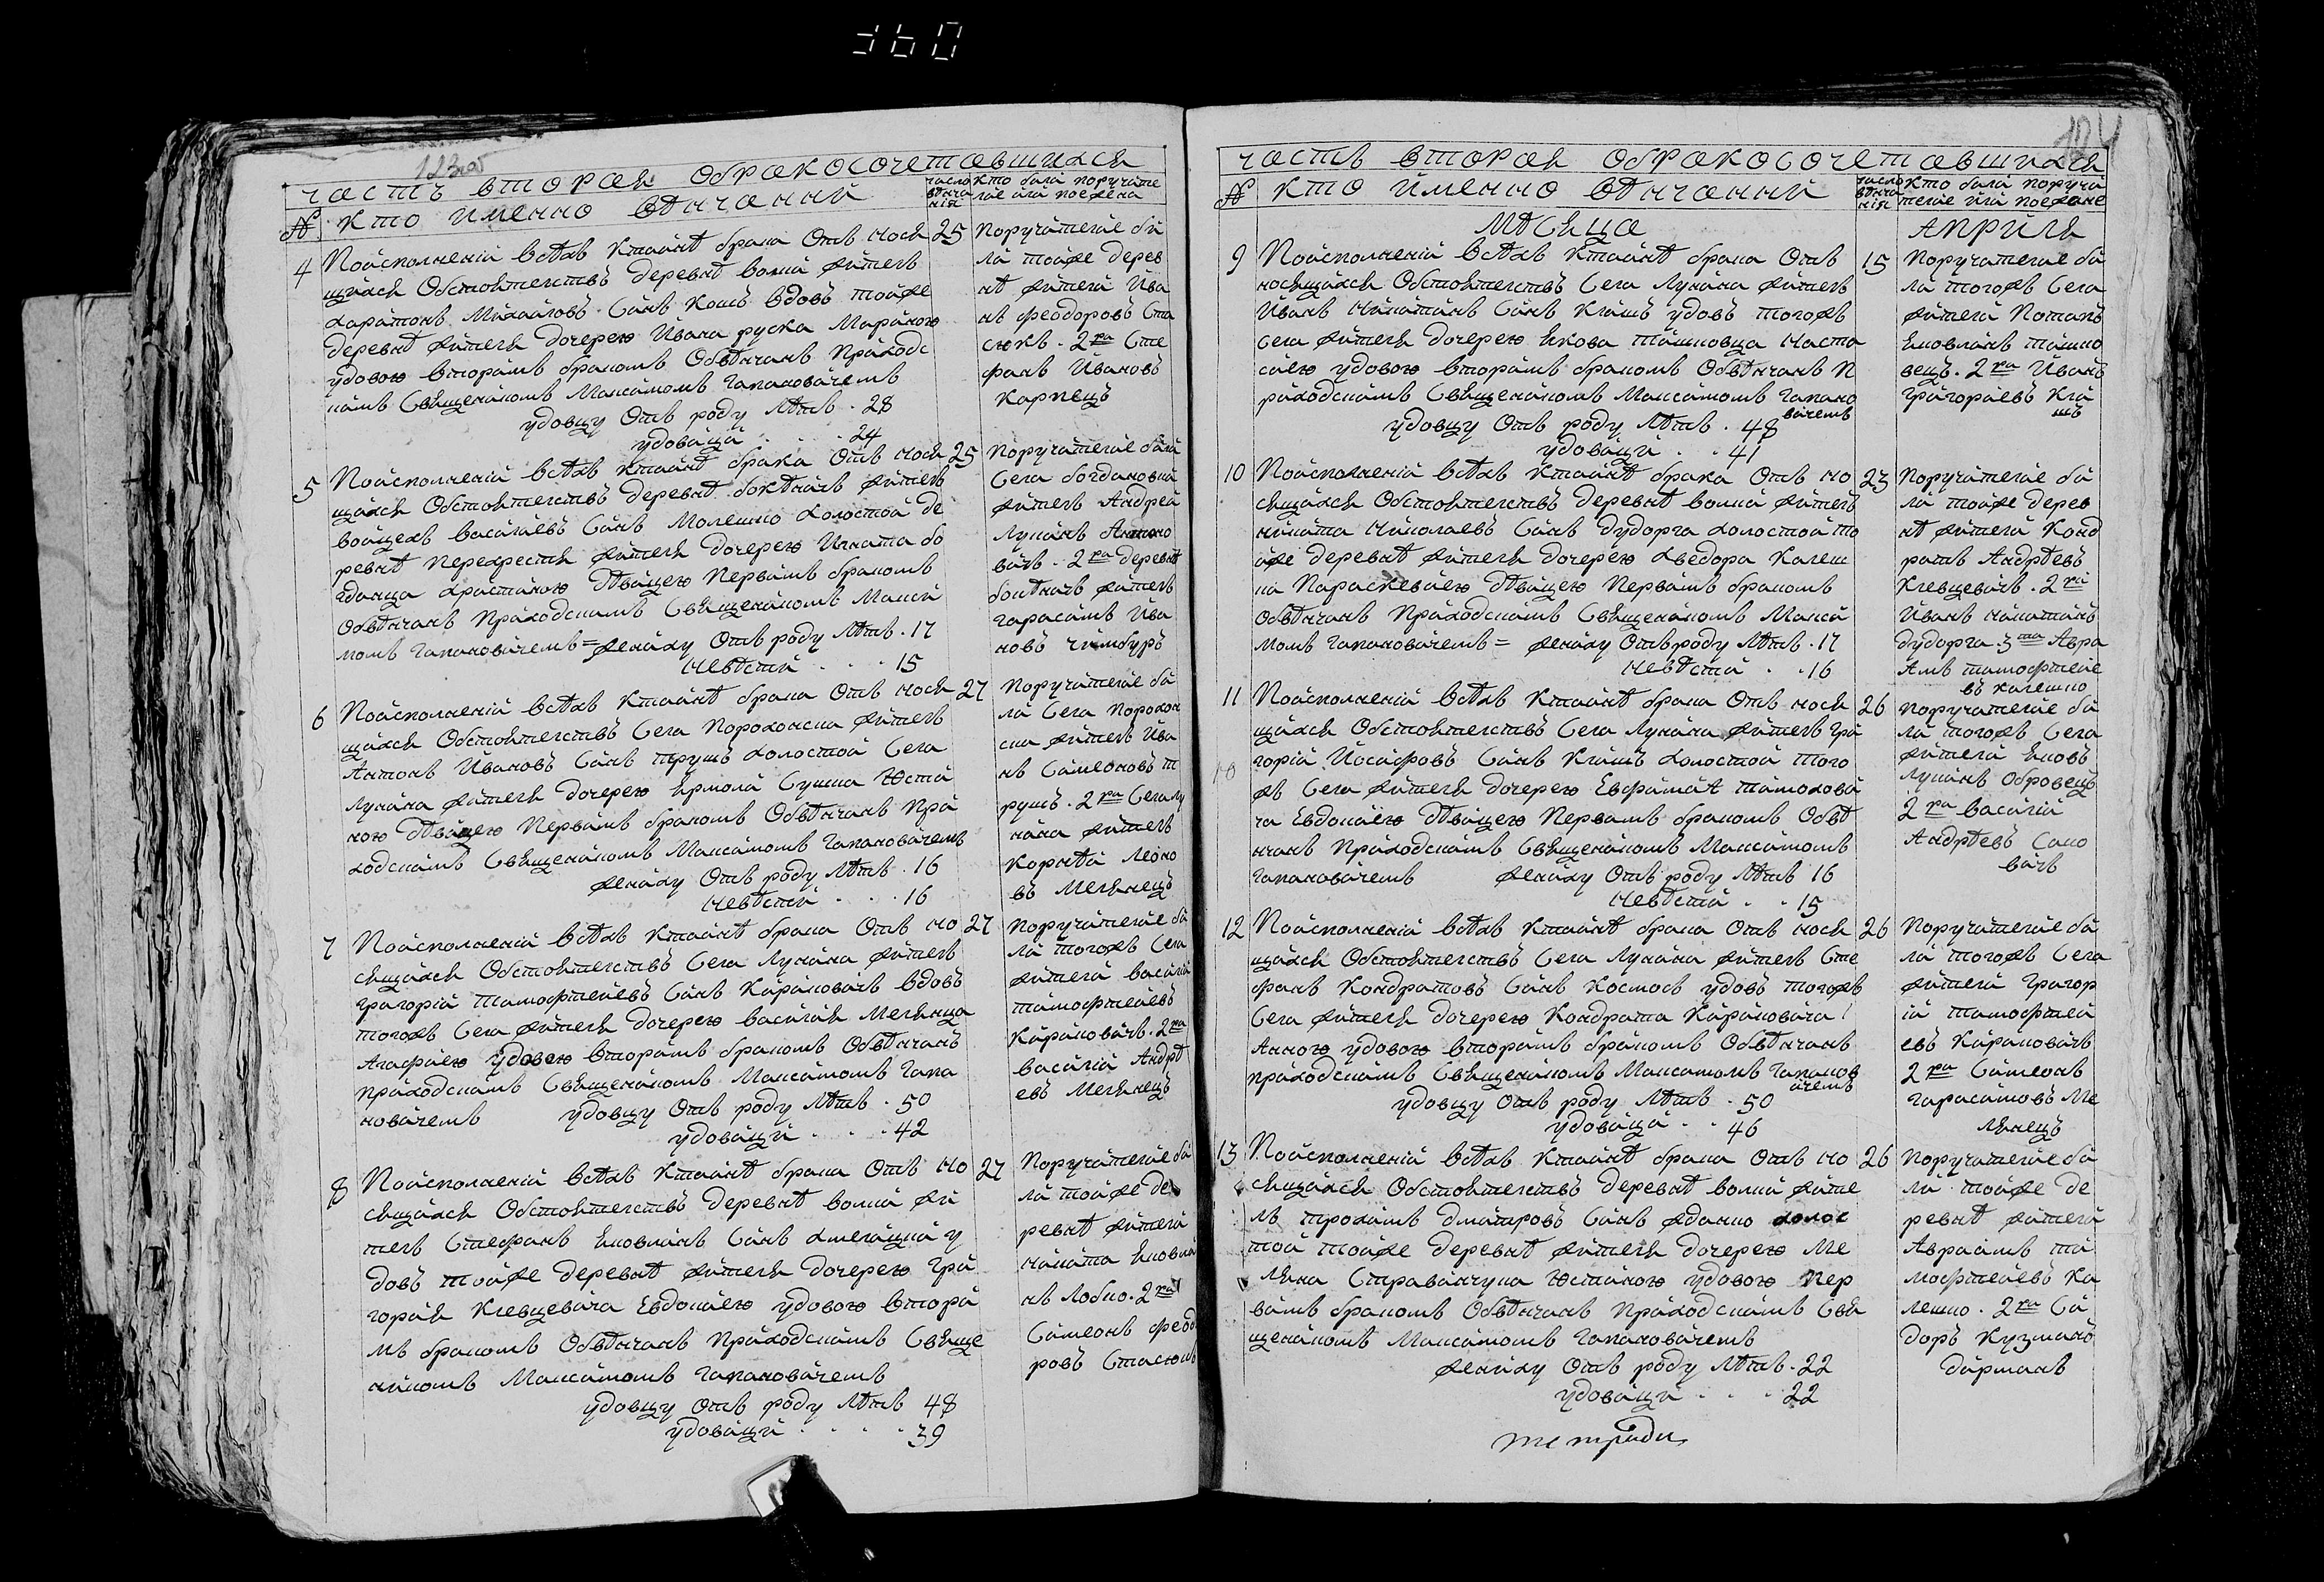 360
123об
часть вторая обракосочетавшихся
№ кто именно венчаний
число венчания
кто были поручители или поезжена
4 Поисполнении всехъ ктаинѣ брака отъ нося 25
щихся обстоятелствъ деревнѣ волки житель
харитонъ Михаиловъ синъ кошъ вдовъ тойже
деревнѣ жителя дочерею Ивана руска Мариною
удовою вторимъ бракомъ обвѣнчанъ приходс
кимъ священикомъ Максимомъ гапановичемъ
удовцу отъ роду лѣтъ . 28
удовици . . . 24
Поручители би
ли тойже дерев
нѣ жители Ива
нъ феодоровъ Ста
сюкъ . 2ги Сте
фанъ Ивановъ
карпецъ
5 Поисполнении всехъ ктаинѣ брака отъ нося 25
щихся обстоятелствъ деревнѣ бокѣничъ житель
войцехъ василиевъ синъ Молешко холостой де
ревнѣ перехрестя жителя дочерею Игната бо
гданца христиною дѣвицею первимъ бракомъ
обвѣнчанъ приходскимъ священикомъ Макси
момъ гапановичемъ = жениху отъ роду лѣтъ . 17
невѣсти . . . 15
Поручители били
села богдановки
житель Андрей
лукинъ Антоно
вичъ . 2ги деревнѣ
бокѣничъ житель
гарасимъ Ива
новъ чимбуръ
6 Поисполнении всехъ ктаинѣ брака отъ нося 27
щихся обстоятелствъ села порохонска житель
Антонъ Ивановъ синъ трушъ холостой села
лунина жителя дочерею Ермоли Сушка Юсти
ною дѣвицею первимъ бракомъ обвѣнчанъ при
ходскимъ священикомъ Максимомъ гапановичемъ
жениху отъ роду лѣтъ . 16
невѣсти . . . 16
Поручители би
ли села порохон
ска житель Ива
нъ Симеоновъ т
рушъ . 2ги села лу
нина житель
корнѣй Леоно
въ Мелянецъ
7 Поисполнении всехъ ктаинѣ брака отъ но 27
сящихся обстоятелствъ села лунина житель
григорий тимофтеиевъ синъ кириковичъ вдовъ
тогожъ села жителя дочерею василия мелянца
Агафиею удовою вторимъ бракомъ обвѣнчанъ
приходскимъ священикомъ Максимомъ гапа
новичемъ удовцу отъ роду лѣтъ . 50
удовици . . . 42
Поручители би
ли тогожъ села
жители василий
тимофтеиевъ
кириковичъ . 2ги
василий Андрѣ
евъ Мелянецъ
8 Поисполнении всехъ ктаинѣ брака отъ но 27
сящихся обстоятелствъ деревнѣ волки жи
тель Стефанъ Яковлинъ синъ хмелицкий у
довъ тойже деревнѣ жителя дочерею гри
гория клевцевича Евдокиею удовою втори
мъ бракомъ обвѣнчанъ приходскимъ свяще
никомъ Максимомъ гапановичемъ
удовцу отъ роду лѣтъ 48
удовици . . . . 39
Поручители би
ли тойже де
ревнѣ жители
никита Яковли
нъ Лобко . 2ги
Симеонъ феод
ровъ Стасюкъ
124
часть вторая обракосочетавшихся
№ кто именно венчаний
число венчания
кто били поручители или поезжане
мѣсяца априля
9 Поисполнении всехъ ктаинѣ брака отъ 15
носящихся обстоятелствъ села лунина житель
Иванъ никитинъ синъ климъ удовъ тогожъ
села жителя дочерею Якова тишковца наста
сиею удовою вторимъ бракомъ обвѣнчанъ п
риходскимъ священикомъ Максимомъ гапано
вичемъ
удовцу отъ роду лѣтъ . 48
удовици . . 41
Поручители би
ли тогожъ села
жители Потапъ
Яковлинъ тишко
вецъ . 2ги Иванъ
григориевъ кли
мъ
10 Поисполнении всехъ ктаинѣ брака отъ но 23
сящихся обстоятелствъ деревнѣ волки житель
никита николаевъ синъ дудорга холостой то
йже деревнѣ жителя дочерею хведора калеш
ка Параскевиею дѣвицею первимъ бракомъ
обвѣнчанъ приходскимъ священикомъ Макси
момъ гапановичемъ = жениху отъ роду лѣтъ . 17
невѣсти . . 16
Поручители би
ли тойже дерев
нѣ жители конд
ратъ Андрѣевъ
клевцевичъ . 2ги
Иванъ никитинъ
дудорга . 3ти Авра
амъ тимофтеие
въ калешко
11 Поисполнении всехъ ктаинѣ брака отъ нося 26
щихся обстоятелствъ села лунина житель гри
горий Иосифовъ синъ климъ холостой того
жъ села жителя дочерею Евфимиѣ тимохови
ча Евдокиею дѣвицею первимъ бракомъ обвѣ
нчанъ приходскимъ священикомъ Максимомъ
гапановичемъ жениху отъ роду лѣтъ 16
невѣсти . . 15
Поручители би
ли тогожъ села
жители Яковъ
лукинъ обровецъ
2ги василий
Андрѣевъ Сако
вичъ
12 Поисполнении всехъ ктаинѣ брака отъ нося 26
щихся обстоятелствъ села лунина житель Сте
фанъ кондратовъ синъ костюсь удовъ тогожъ
села жителя дочерею кондрата кириковича
Анною удовою вторимъ бракомъ обвѣнчанъ
приходскимъ священикомъ Максимомъ гапанов
ичемъ
удовцу отъ роду лѣтъ . 50
удовици . . 46
Поручители би
ли тогожъ села
жители григор
ий тимофтеи
евъ кириковичъ
2ги Симеонъ
гарасимовъ Ме
лянецъ
13 Поисполнении всехъ ктаинѣ брака отъ но 26
сящихся обстоятелствъ деревнѣ волки жите
ль трохимъ дмитровъ синъ жданко холос
той тойже деревнѣ жителя дочерею Ме
ляна Стравинчука Юстиною удовою пер
вимъ бракомъ обвѣнчанъ приходскимъ свя
щеникомъ Максимомъ гапановичемъ
жениху отъ роду лѣтъ . 22
удовици . . . 22
Поручители би
ли тойже де
ревнѣ жители
Авраамъ ти
мофтеиевъ ка
лешко . 2ги Си
доръ кузминъ
дирманъ